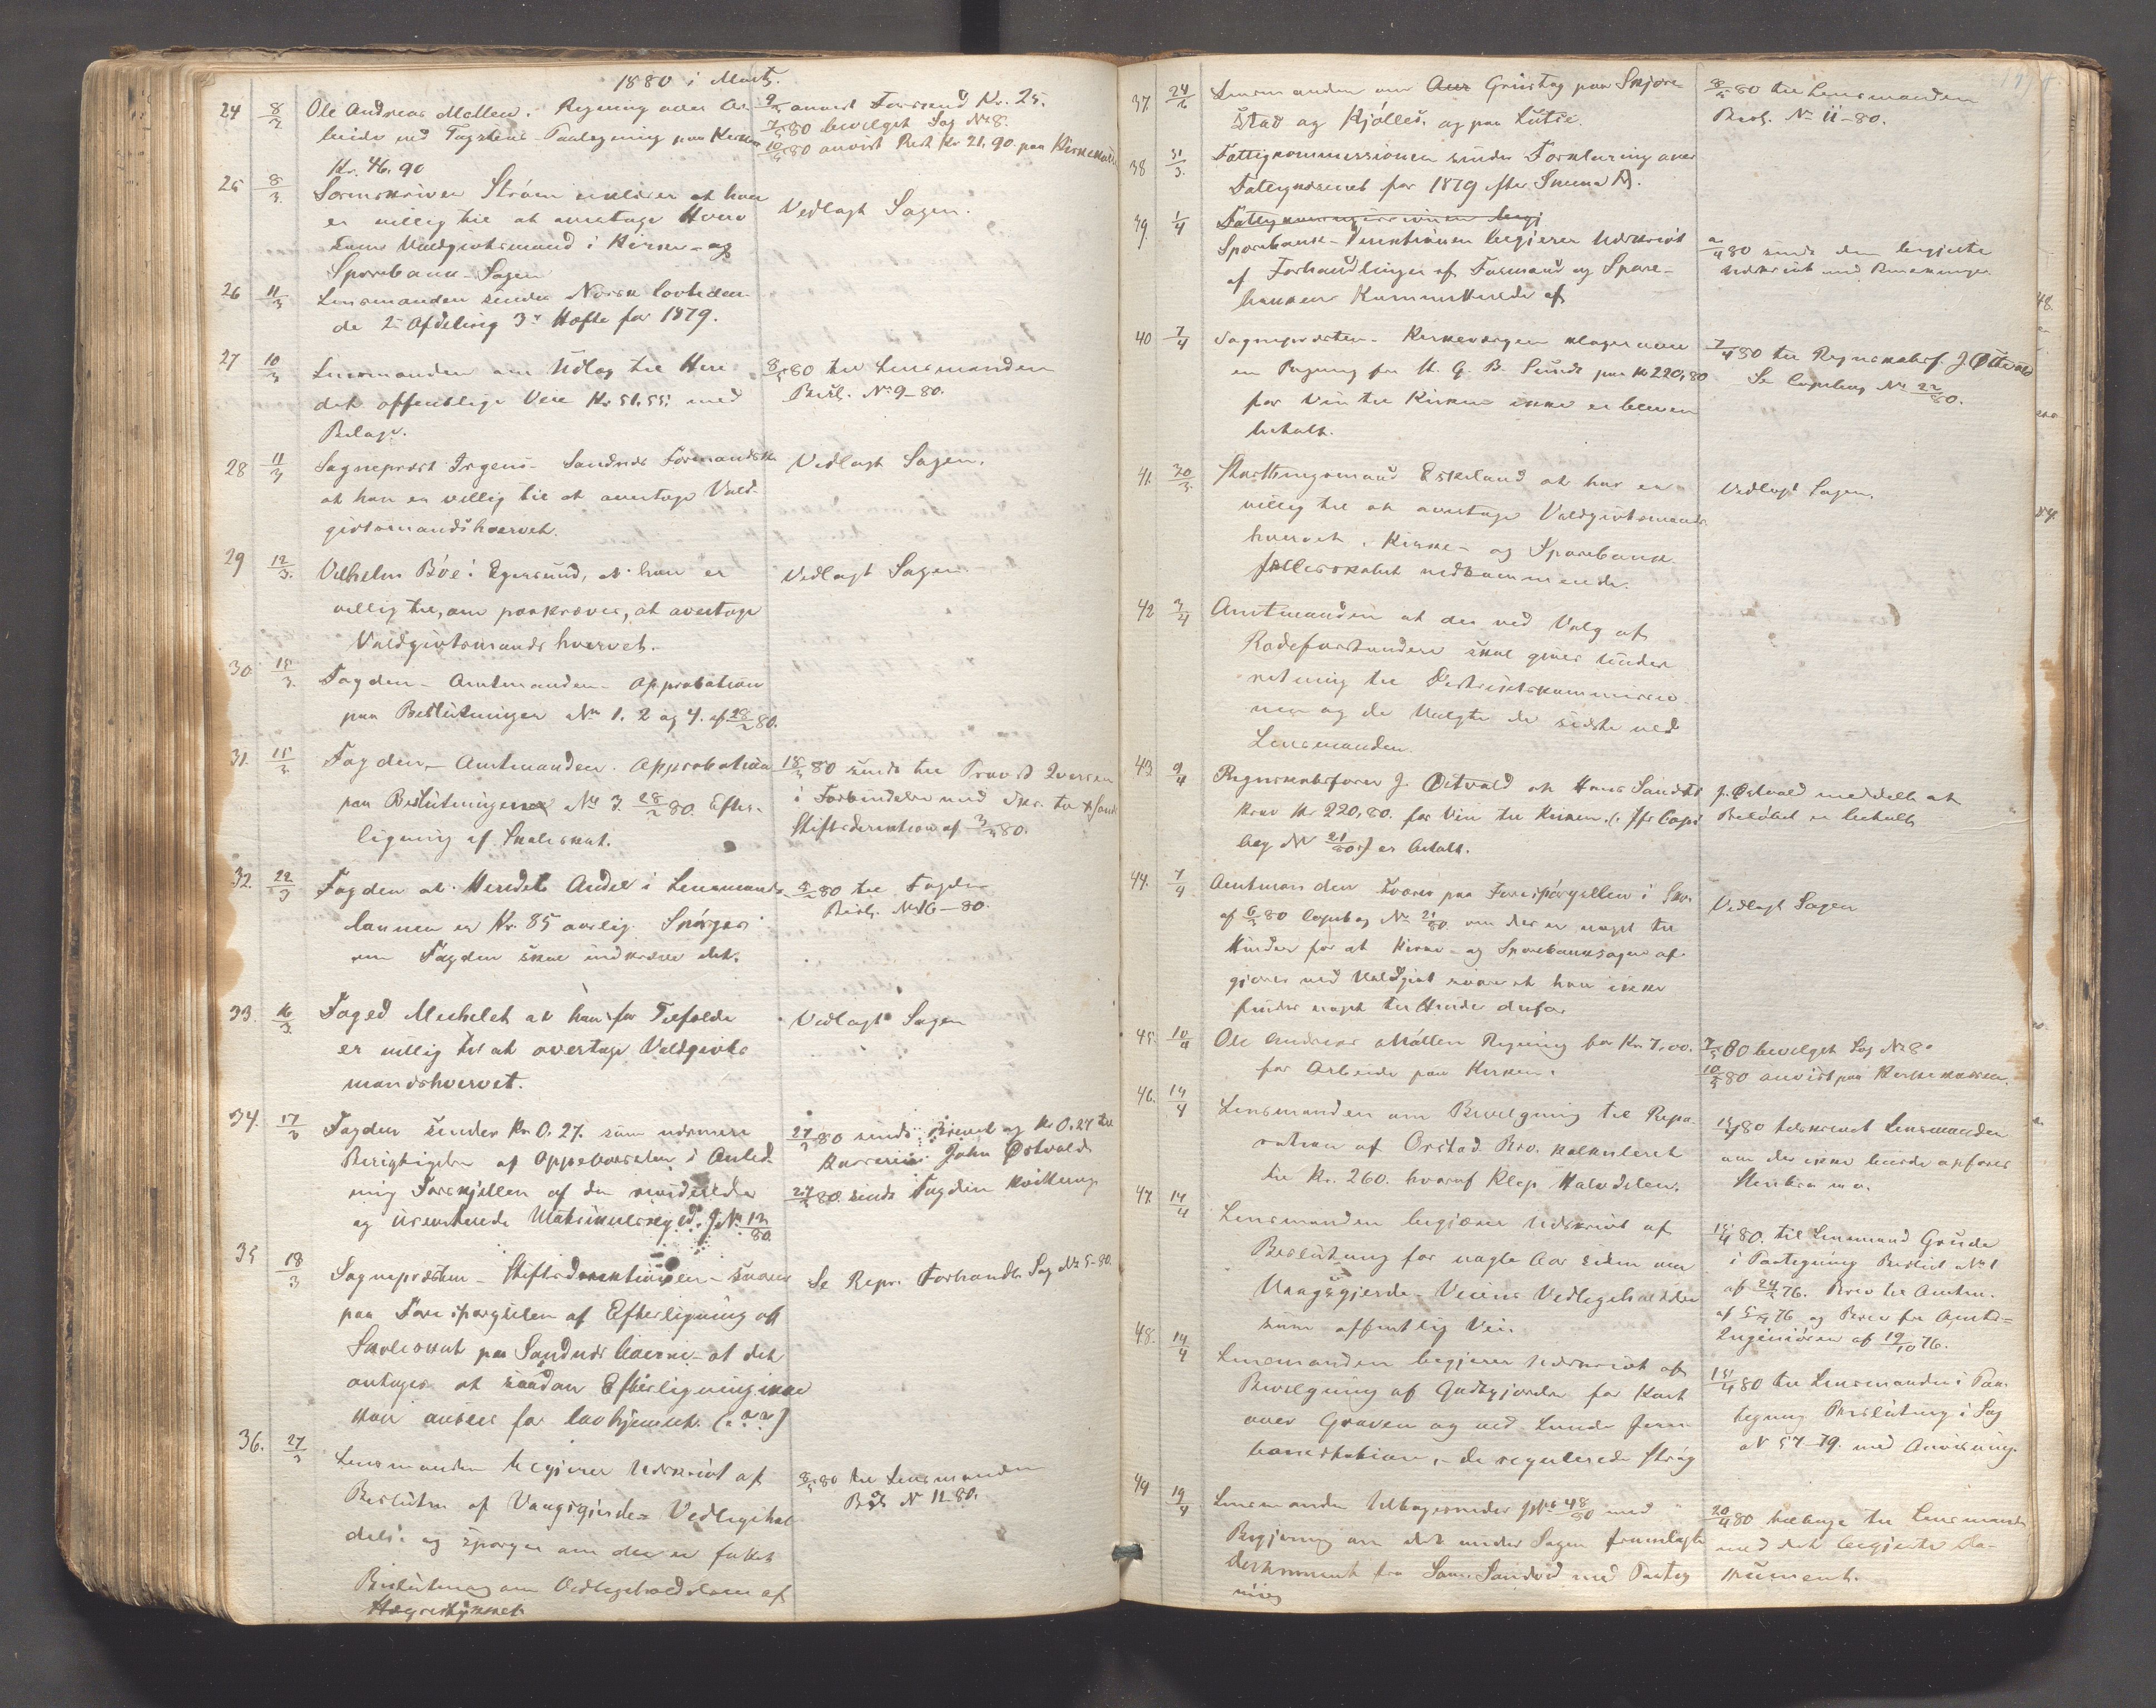 1880 i Marts.
24 8/3 Ole Andreas Møllen. Regning over Ar-
beide ved Tagstens Paalægning paa Kirken
Kr. 46.90
9/3 anvist Forskud Kr. 25.
7/5 80 bevilget Sag No 8.
10/5 80 anvist Rest Kr 21,90 paa Kirkekassen
25 8/3. Sorenskriver Strøm erklærer at han
er villig til at overtage Hverv
som Voldgivtsmand i Kirke- og
Sparebank-Sagen
Vedlagt Sagen.
26 11/3 Lensmanden sender Norsk Lovtiden-
de 2 Afdeling 3 Hefte for 1879.
27 10/3 Lensmanden om Udlæg til Here-
det offentlige Veie Kr. 51.55 med
Bilage.
8/5 80 til Lensmanden
Besl. No 9-80.
28 11/3 Sogneprest Irgens Sandnes Formandsk.
at han er villig til at overtage Vold-
givtsmandshvervet.
Vedlagt Sagen.
29 12/3. Vilhelm Bøe i Egersund, at han er
villig til, om paakræves, at overtage
Voldgivtsmandshvervet.
Vedlagt Sagen
30. 15/3. Fogden - Amtmanden - Approbation
paa Beslutninger No 1. 2 og 4. af 28/2 80.
31. 15/3. Fogden - Amtmanden. Approbation
paa Beslutningen No 3 28/2 80. Efter-
ligning af Skoleskat.
18/3 80 sendt til Provst
i Forbindelse med Skr. til
Stiftsdirektion af 3/4 80.
32. 22/3 Fogden at Heredets Andel i Lensmands-
lønnen er Kr. 85 aarlig. Spørges
om Fogden skal indkræve det.
80 til Fogden
Besl. No 16-80.
33. 16/3. Foged Michelet at han for Tilfælde
er villig til at overtage Voldgivts-
mandshvervet.
Vedlagt Sagen
34. 17/3 Fogden sender Kr. 0.27. som nærmere
Berigtigelse af Oppebørselen i Anled-
ning Forskjellen af den reviderede
og ureviderede Matrikulskyld. J. No 12/80
27/3 80 sendt Brevet og Kr 0.27 til
Kasserer John Østvold
27/3 80. sendt Fogden Kvittering
35 18/3 Sognepresten - Stiftsdirektionen - svarer
paa Forespørgselen af Efterligning af
Skoleskat paa Sandnes - at det
antages at saadan Efterligning ikke
kan ansees for lovhjemlet.
Se Repr. Forhandl. Sag No 5-80.
36. 27/3 Lensmanden begjerer Udskrivt af
Beslutn af Vaagsgjerde- Vedligehol-
delse og spørger om der er fattet
Beslutning om Vedligeholdelsen af
8/5 80 til Lensmanden
Besl. N 12-80.
37 Lensmanden om Grustag paa Skjære-
stad og Kjølles. og paa Lutsi.
8/5 80 til Lensmanden
Besl. No 11-80.
38 31/3. Fattigkommissionen sender Forklaring over
Fattigvæsenet for 1879 efter Skema A.
39 1/4 Fattigkommissionen begj
Sparebank-Direktionen begjerer Udskrivt
af Forhandlinger af Formand og Spare-
bankens Kommitterede af
80 sendt den begjerte
Udskrivt med Bemerkninger
40 7/4 Sognepresten - Kirkevergen klager over
en Regning fra H. G. B. Sundt paa Kr 220,80
for Vin til Kirken ikke er bleven
betalt.
7/4 80 til Regnskabsf. J Østvold
Se Copibog No 22/80.
41. 30/3 Storthingsmand Eskeland at han er
villig til at overtage Voldgivtsmands-
hvervet. Kirke- og Sparebank-
fællesskabet vedkommende.
Vedlagt Sagen.
42 3/4 Amtmanden at der ved Valg af
Rodeforstandere skal gives Under-
retning til Distriktskommissio-
nen og de Valgte de sidste ved
Lensmanden.
43 9/4 Regnskabsfører J. Østvold at Hans Sundts
Krav Kr. 220,80. for Vin til Kirken (jfr Copi-
bog No 21/80) er betalt.
J. Østvold meddelt at
Beløbet er betalt
44. 7/4 Amtmanden svarer paa Forespørgsellen i Skr.
af 6/3 80 Copibog No 21/80 om der er noget til
Hinder for at Kirke- og Sparebanksagen af-
gjøres ved Voldgivt svarer at han ikke
finder noget til Hinder derfor
Vedlagt Sagen
45. 10/4 Ole Andreas Møllen Regning for Kr. 7.00.
for Arbeide paa Kirken.
7/5 80 bevilget Sag No 8.
10/5 80 anvist paa Kirkekassen.
46. 14/4 Lensmanden om Bevilgning til Repa-
ration af Orstad Bro. kalkuleret
til Kr. 260. hvoraf Klep Halvdelen.
15/4 80 tilskrevet Lensmanden
om der ikke burde opføres
Stenbro m.v.
47. 14/4 Lensmanden begjærer Udskrivt af
Beslutning for nogle Aar siden om
Vaagsgjerde-Veiens Vedligeholdelse
som offentlig Vei.
15/4 80. til Lensmand Grude
i Paategning Beslut No 1
af 24/2 76. Brev til Amtm.
af 76 og Brev fra Amts-
Ingeniøren af 19/10 76.
48. 14/4 Lensmanden begjerer Udskrivt af
Bevilgning af Godtgjørelse for Kart
over Graven og ved Lunde Jern-
banestation, - de regulerede Strøg
15/4 80 til Lensmanden i Paa-
tegning Beslutning i Sag
N 57-79. med Anvisning.
49 19/4 Lensmanden tilbagesender J No 48/80 med
Begjering om det under Sagen fremlagte
Dokument fra Sandved med Paateg-
ning
20/4 80 tilbage til Lensmanden
med det begjerte Do-
kument.